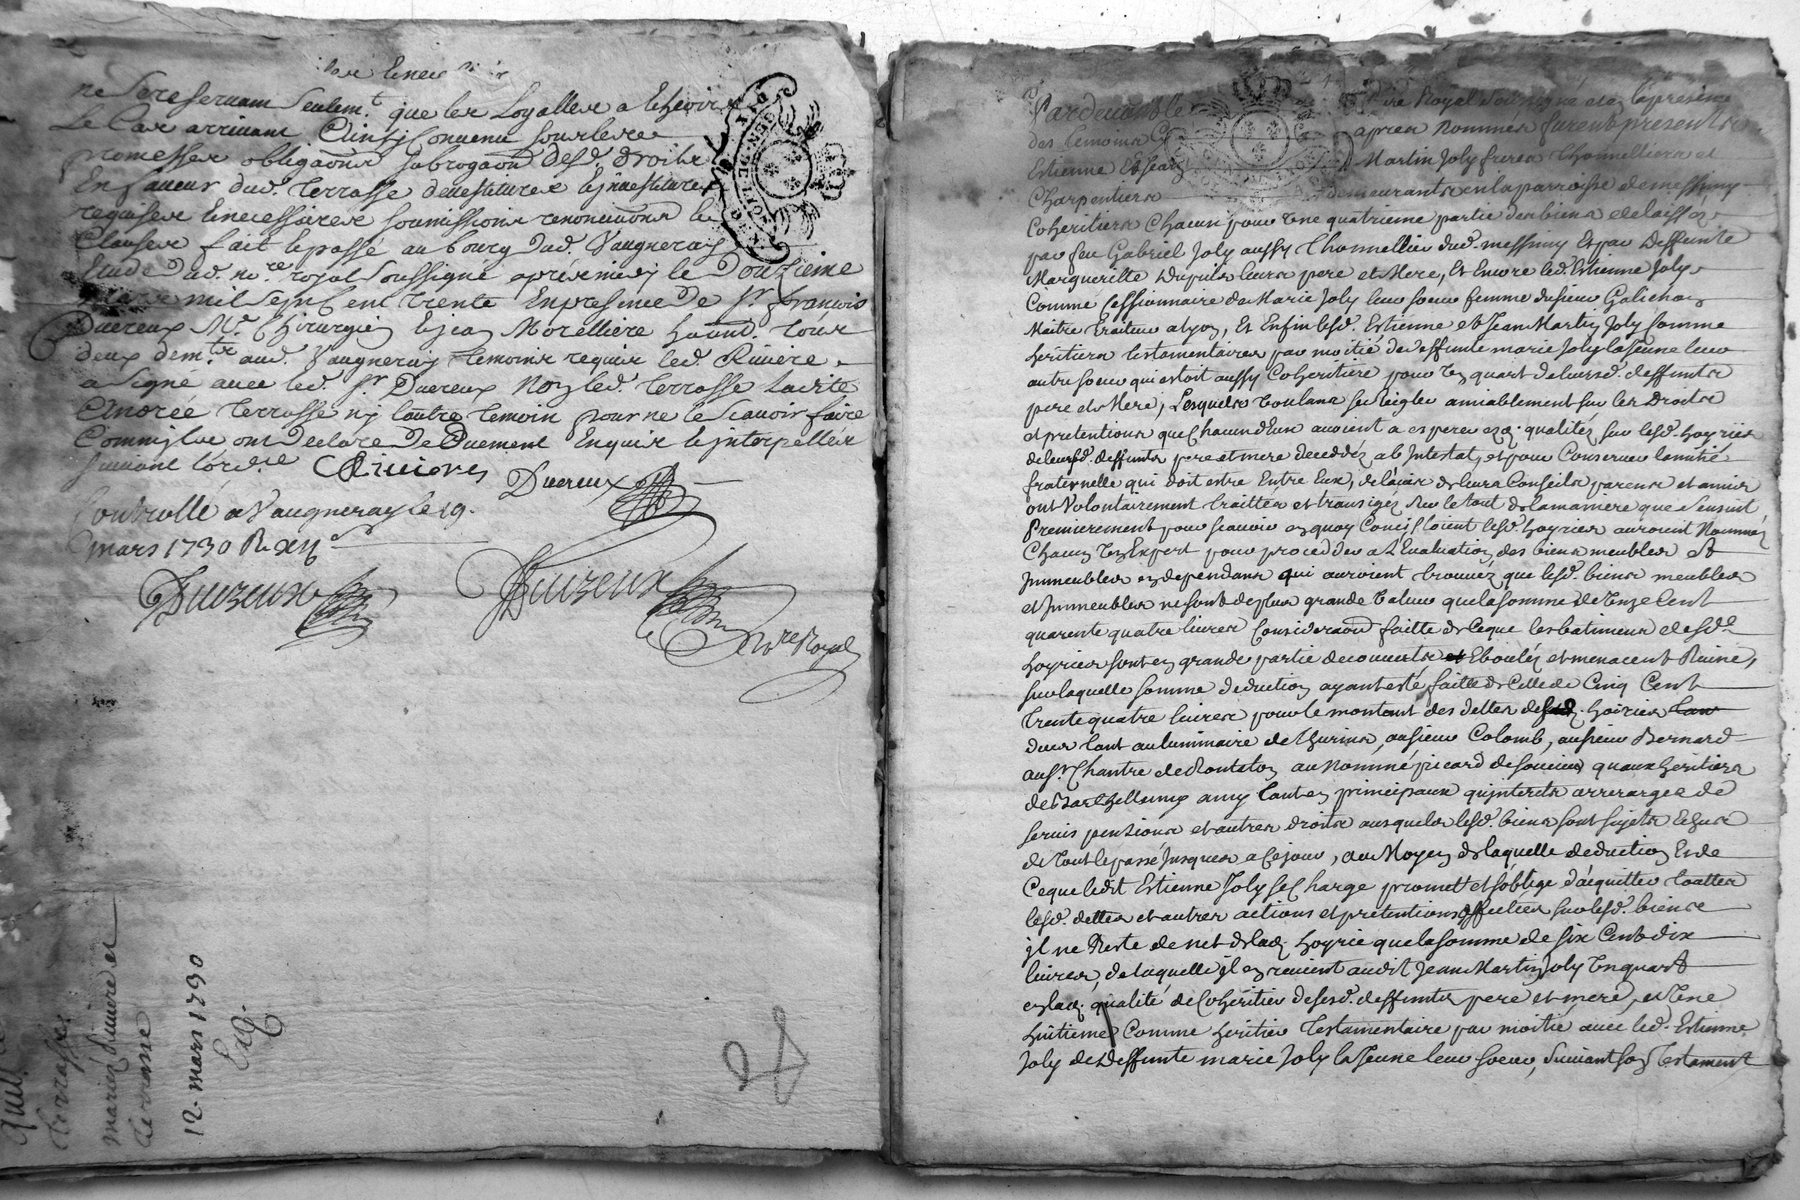 ne se reservant seulemt. que les Loyalles
Le Cas arrivant Ainsy Convenu sous les
promesses obligaons subrogaon desd. droits
En faveur dud. Terrasse devestitures
requises necessaires soumissions renonciaons
Clauses fait passé au bourg dud. Vaugneray
Etude dud. nore. royal soussigné aprés midy le Douzieme
mars mil sept cent trente En presence de Sr. françois
Duereux Me. Chirurgien jean Morellière tous
deux demts. aud. Vaugneray temoins requis led. Riviere
a signé avec led. Sr Duereux Non led. Terrasse Ladite
Andrée Terrasse ny l'autre temoin pour ne le scavoir faire
Comm'ils ont declare De Duement Enquis interpellés
suivant l'ord.
Riviere
Duereux
Controllé a Vaugneray le 19.
mars 1730 R. XII s
Duereux
Duereux
nre Royal
DE LYON
GEN
Terrasse
marier
12. mars 1730
Par devant le Royal Soussigné et en la presence
des temoins apres Nommes furent presents
Estienne Et Jean Martin Joly freres Thonnelliers et
Charpentiers demeurants en la parroisse de messimy
Coheritiers Chacun pour Une quatrieme partie des biens delaissés
par feu Gabriel Joly aussy Thonnellier dud. messimy Et par Deffunte
Margueritte Dupuis leurs pere et Mere, Et Encore led. Estienne Joly
Comme Cessionnaire de Marie Joly leur soeur femme du sieur
Maitre traiteur a Lyon, Et Enfin lesd. Estienne et Jean Martin Joly comme
heritiers testamentaires par moitié de deffunte marie Joly la Jeune leur
autre soeur qui estoit aussy Coheritiere pour Un quart de leursd. deffunts
pere et Mere, Lesquels Voulans se reigler amiablement sur les Droits
et pretentions que Chacun d'Eux avoient a esperer esd. qualités sur lesd. hoyries
de leursd. deffunts pere et mere decedés ab Intestat, et pour Conserver lamitié
fraternelle qui doit estre Entre Eux, de lavis de leurs Conseils parens et amis
ont Volontairement traittés et transigés sur le tout de la maniere que s'ensuit
Premierement pour scavoir en quoy Consistoient lesd. hoyries auroient Nommés
Chacun Un Expert pour proceder a L'Evaluation des biens meubles Et
Immeubles en dependans qui auroient trouvéz que lesd. biens meubles
et Immeubles ne sont de plus grande Valeur que la somme de Unze Cent
quarente quatre livres Consideraon faitte de Ceque les batimens desd.
hoyries sont en grande partie decouverts Eboulés et menacent Ruine,
sur laquelle somme deduction ayant esté faitte de Celle de Cinq Cent
trente quatre livres pour le montant des dettes desd. hoiries
deus tant au luminaire de thurins, au sieur Colomb, au sieur Bernard
au Sr. Chantre de au Nommé picard de soucieu qu'aux heritiers
de Barthellemy amy tant en principaux qu'interets arrerages de
servis pensions et autres droits ausquels lesd. biens sont sujets
de tout le passé Jusques a Ce jour, au Moyen de laquelle deduction Et de
Ceque ledit Estienne Joly se Charge promet et soblige d'acquitter touttes
lesd. dettes et autres actions et pretentions affectées sur lesd. biens
il ne Reste de net de lad. hoyrie que la somme de six Cent dix
livres, de laquelle il en revient audit Jean Martin Joly Un quart
en lad. qualité de Coheritier de sesd. deffunts pere et mere, et Une
huitieme Comme heritier Testamentaire par moitié avec led. Estienne
Joly de Deffunte marie Joly la Jeune leur soeur, suivant son Testament